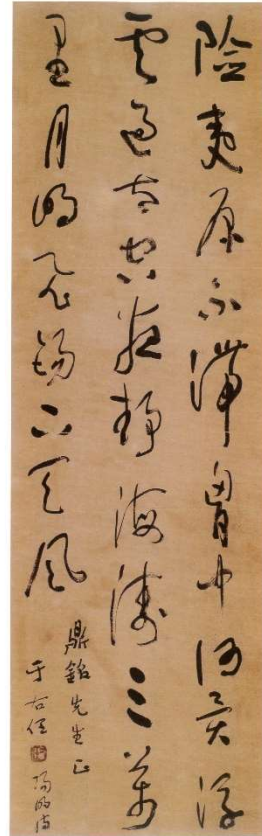 險夷原不滯胷中何異浮
雲過太空夜靜海濤三萬
里月明飛錫下天風
鼎銘先生正
于右任
陽明詩